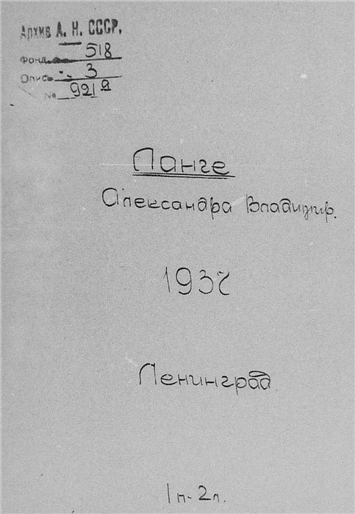 Архив А. Н. СССР.
Фонд 518
Опись 3
№ 921а
Ланге
Александра Владимир.
1937
Ленинград
1п-2л.